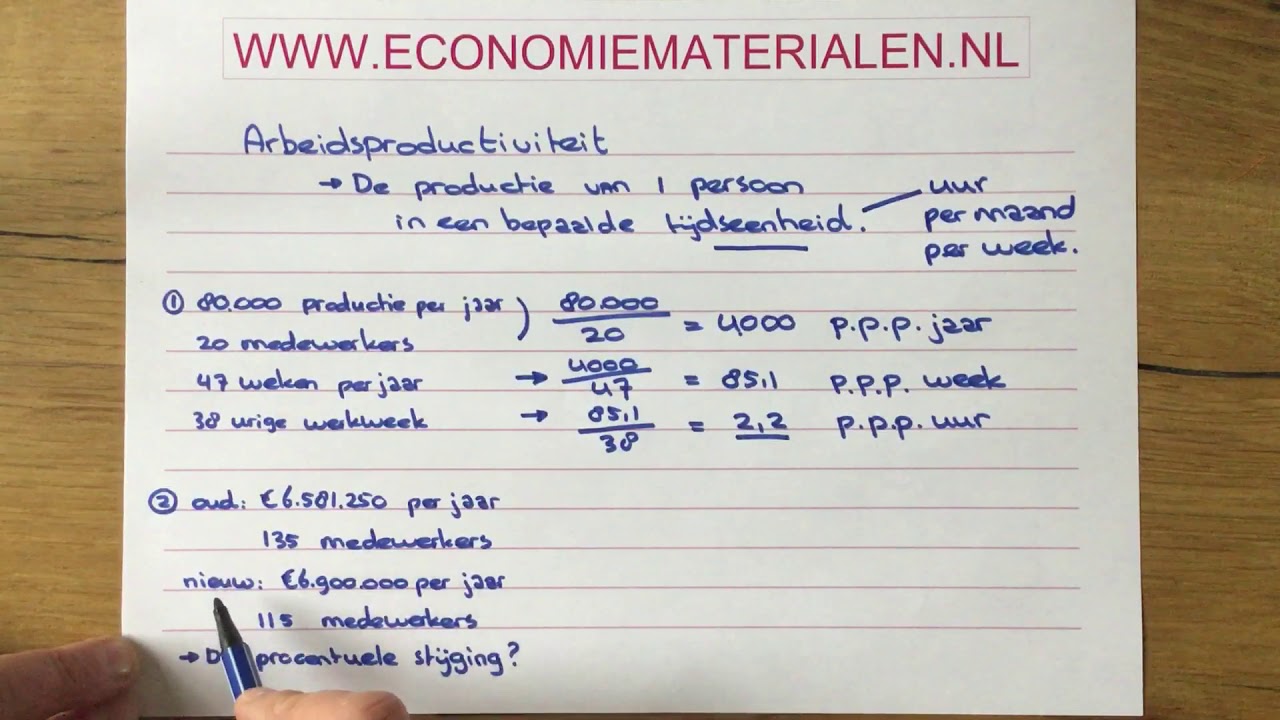 WWW.ECONOMIEMATERIALEN.NL
Arbeidsproductiviteit
→ De productie van 1 persoon
in een bepaalde tijdseenheid.
uur
per maand
per week.
① 80.000 productie per jaar ) 80.000 / 20 = 4000 p.p.p. jaar
20 medewerkers
47 weken per jaar → 4000 / 47 = 85,1 p.p.p. week
38 urige werkweek → 85,1 / 38 = 2,2 p.p.p. uur
② oud: €6.581.250 per jaar
135 medewerkers
nieuw: €6.900.000 per jaar
115 medewerkers
→ procentuele stijging?